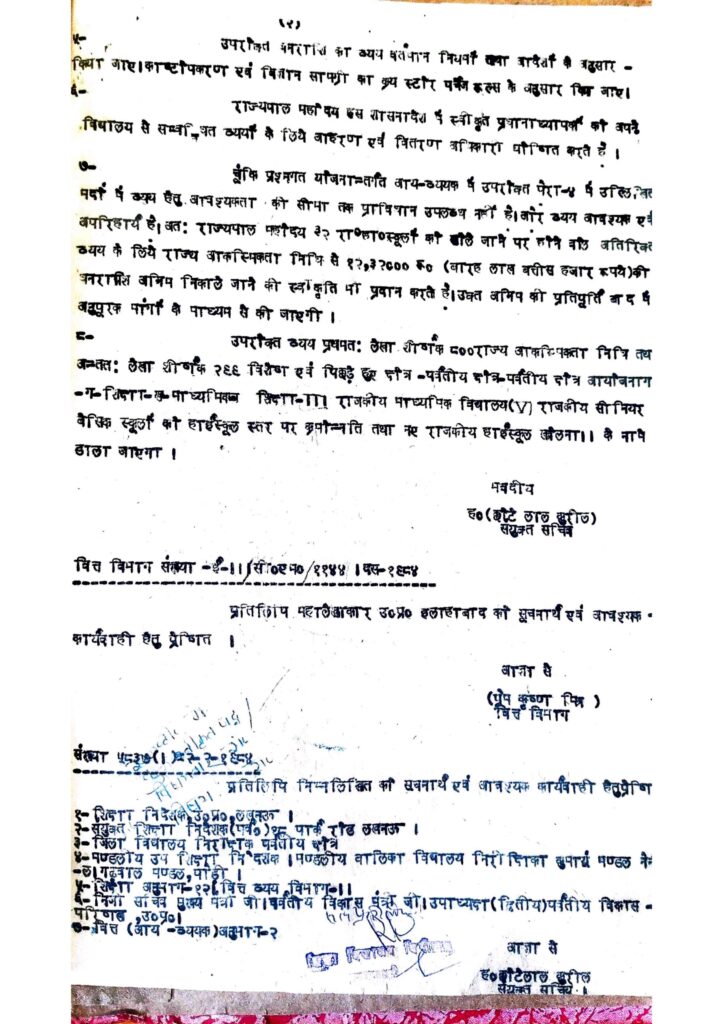 (२)
५-
उपरोक्त धनराशि का व्यय वर्तमान नियमों तथा आदेशों के अनुसार -
किया जाए। काष्टोपकरण एवं विज्ञान सामग्री का क्रय स्टोर पर्चेज रूल्स के अनुसार किया जाए।
६-
राज्यपाल महोदय इस शासनादेश में स्वीकृत प्रधानाध्यापकों को अपने
विद्यालय से सम्बन्धित व्ययों के लिये आहरण एवं वितरण अधिकारी घोषित करते हैं ।
७-
चूंकि प्रश्नगत योजनान्तर्गत आय-व्ययक में उपरोक्त पैरा-४ में उल्लिखित
मदों में व्यय हेतु आवश्यकता की सीमा तक प्राविधान उपलब्ध नहीं है। और व्यय आवश्यक एवं
अपरिहार्य है। अत: राज्यपाल महोदय ३२ रा०हा०स्कूलों को खोले जाने पर होने वाले अतिरिक्त
व्यय के लिये राज्य आकस्मिकता निधि से १२,३२००० रु० (बारह लाख बत्तीस हजार रूपये) की
धनराशि अग्रिम निकाले जाने की स्वीकृति भी प्रदान करते हैं। उक्त अग्रिम की प्रतिपूर्ति बाद में
अनुपूरक मांगों के माध्यम से की जाएगी ।
८-
उपरोक्त व्यय प्रथमत: लेखा शीर्षक ८०० राज्य आकस्मिकता निधि तथा
अन्तत: लेखा शीर्षक २६६ विशेष एवं पिछड़े हुए क्षेत्र -पर्वतीय क्षेत्र-पर्वतीय क्षेत्र आयोजनाग
-ग-शिक्षा-ख-माध्यमिक शिक्षा-III राजकीय माध्यमिक विद्यालय (V) राजकीय सीनियर
बेसिक स्कूलों को हाईस्कूल स्तर पर क्रमोन्नति तथा नए राजकीय हाईस्कूल खोलना।। के नामे
डाला जाएगा ।
भवदीय
ह० (छोटे लाल कुरील)
संयुक्त सचिव
वित्त विभाग संख्या -ई-11/सी०एम०/११४४ । दस-१९८४
प्रतिलिपि महालेखाकार उ०प्र० इलाहाबाद को सूचनार्थ एवं आवश्यक -
कार्यवाही हेतु प्रेषित ।
आज्ञा से
(प्रेम कृष्ण मिश्र )
वित्त विभाग
संख्या ५८३७(1)
प्रतिलिपि निम्नलिखित को सूचनार्थ एवं आवश्यक कार्यवाही हेतु प्रेषित
१- शिक्षा निदेशक उ०प्र०, लखनऊ ।
२- संयुक्त शिक्षा निदेशक (पर्व०) १८ पार्क रोड लखनऊ ।
३- जिला विद्यालय निरीक्षक पर्वतीय क्षेत्र
४- मण्डलीय उप शिक्षा निदेशक । मण्डलीय बालिका विद्यालय निरीक्षिका कुमायूं मण्डल नैनी
-ल। गढ़वाल मण्डल, पौड़ी ।
५- शिक्षा अनुभाग-१२। वित्त व्यय, विभाग-11
६- निजी सचिव मुख्य मंत्री जी। पर्वतीय विकास मंत्री जी। उपाध्यक्ष (द्वितीय) पर्वतीय विकास -
परिषद, उ०प्र०।
७- वित्त (आय -व्ययक) अनुभाग-२
आज्ञा से
ह० छोटेलाल कुरील
संयुक्त सचिव ।